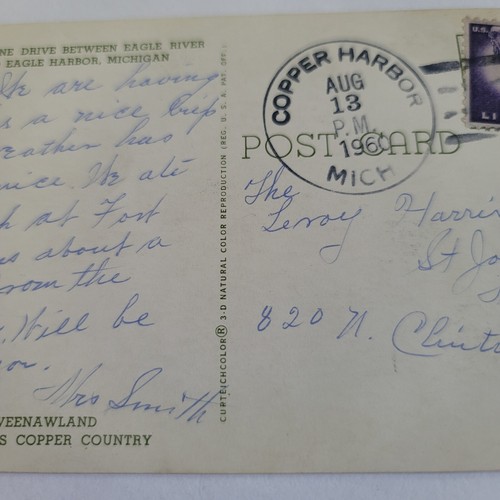 NE DRIVE BETWEEN EAGLE RIVER
EAGLE HARBOR, MICHIGAN
We are having
s a nice trip
eather has
nice. We ate
at Fort
ns about a
from the
. Will be
Mrs Smith
WEENAWLAND
S COPPER COUNTRY
CURTEICHCOLOR® 3-D NATURAL COLOR REPRODUCTION (REG. U.S.A. PAT. OFF.)
COPPER HARBOR
AUG
13
P.M.
1960
MICH
POST CARD
U.S.
LI
The
Leroy Harri
St Jo
820 N. Clinto